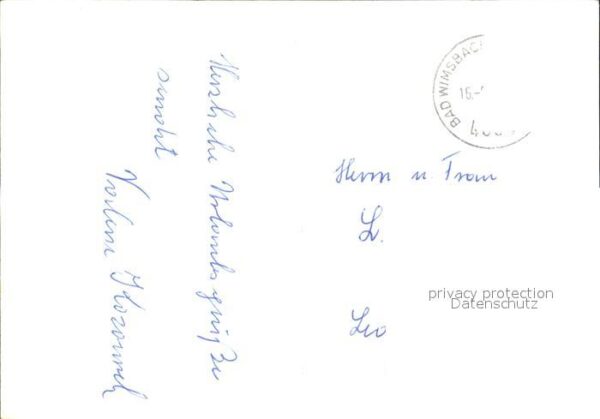 Herzliche Urlaubsgrüße
sendet
BAD WIMSBAC
16.-
Herrn u Frau
L.
Leo
privacy protection
Datenschutz